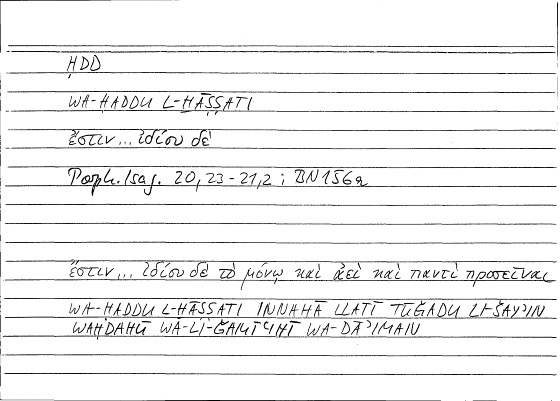 ḤDD
WA-ḤADDU L-ḪĀṢṢATI
ἔστιν... ἰδίου δὲ
Porph. Isag. 20, 23-21,2 ; BN156a
ἔστιν... ἰδίου δὲ τὸ μόνῳ καὶ ἀεὶ καὶ παντὶ προσεῖναι
WA-ḤADDU L-ḪĀṢṢATI INNAHĀ LLATĪ TŪǦADU LI-ŠAYʾIN
WAḤDAHŪ WA-LI-ǦAMĪʿIHĪ WA-DĀʾIMAN